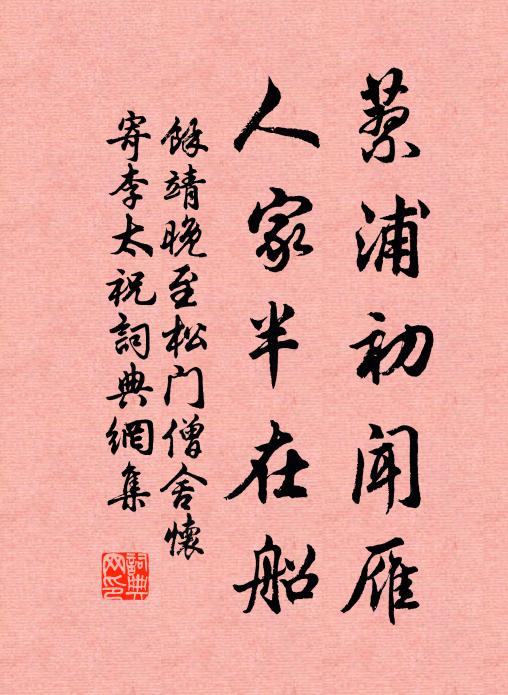 浦初闻雁
人家半在船
餘靖晚至松门僧舍懷
寄李太祝詞典網集
詞典网印